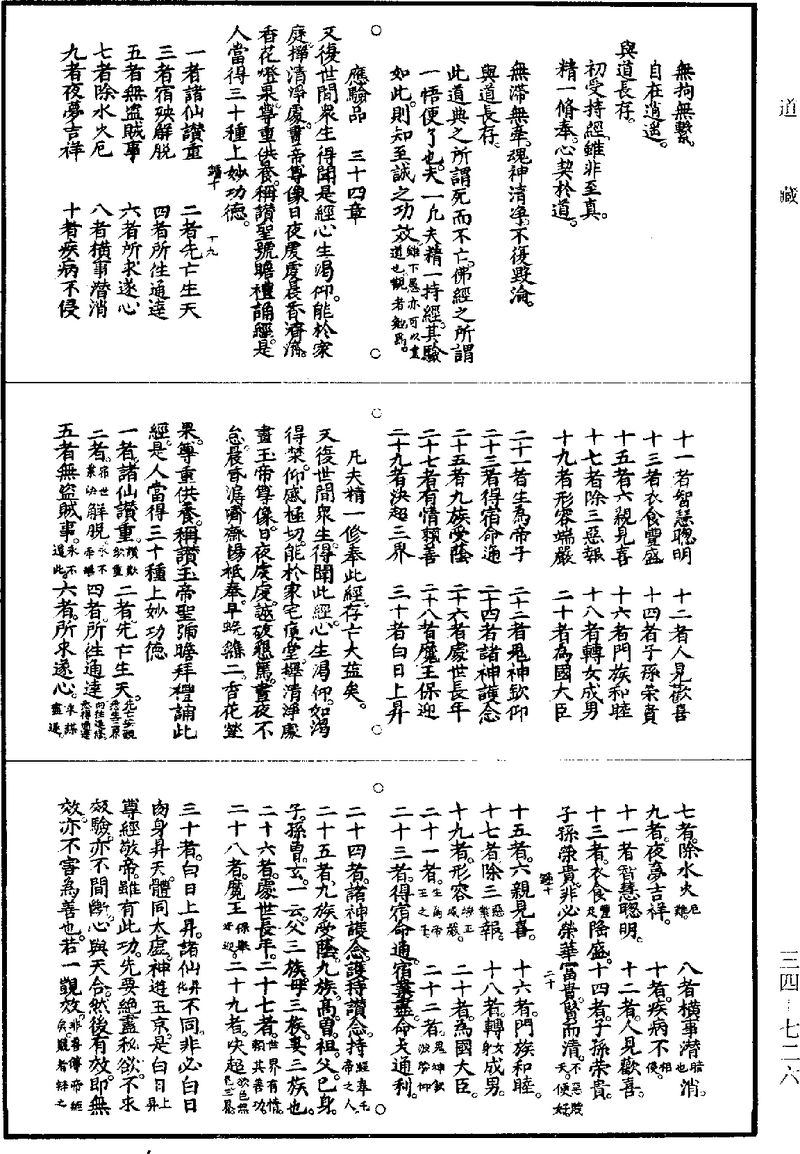 道藏
無拘無繫
自在逍遥
與道長存
初受持經雖非至真
精一脩奉心契於道
無滯無牽魂神清淨不復毀淪
與道長存
此道典之所謂死而不亡佛經之所謂
一悟便了也夫一凡夫精一持經其驗
如此則知至誠之功效雖下愚亦可以
道也觀者勉
應驗品 三十四章
又復世間衆生得聞是經心生渴仰能於家
庭擇清淨處畫帝尊像日夜虔虔晨昏濟濟
香花燈果尊重供養稱讚聖號瞻禮誦經是
人當得三十種上妙功德
十九
一者諸仙讚重 二者先亡生天
三者宿殃解脱 四者所往通達
五者無盜賊事 六者所求遂心
七者除水火厄 八者橫事潛消
九者夜夢吉祥 十者疾病不侵
十一者智慧聰明 十二者人見歡喜
十三者衣食豐盛 十四者子孫榮貴
十五者六親見喜 十六者門族和睦
十七者除三惡報 十八者轉女成男
十九者形容端嚴 二十者為國大臣
二十一者生為帝子 二十二者鬼神欽仰
二十三者得宿命通 二十四者諸神護念
二十五者九族受蔭 二十六者處世長年
二十七者有情類善 二十八者魔王保迎
二十九者決超三界 三十者白日上昇
凡夫精一修奉此經存亡大益矣
又復世間衆生得聞此經心生渴仰如渴
得槳仰感極切能於家宅庭堂擇清淨處
畫玉帝尊像日夜虔虔誠敬懇篤晝夜不
怠晨昏濟濟肅揚祗奉早晚無二香花燈
果尊重供養稱讚玉帝聖號瞻拜禮誦此
經是人當得三十種上妙功德
一者諸仙讚重讚歎欽重 二者先亡生天
三者宿世業殃解脱 四者所往通達
五者無盜賊事永不遭此 六者所求遂心求謀盡遂
七者除水火厄難 八者橫事潛暗也消
九者夜夢吉祥 十者疾病不相侵
十一者智慧聰明 十二者人見歡喜
十三者衣食豐足隆盛 十四者子孫榮貴
子孫榮貴非必榮華富貴貧而清
二十
十五者六親見喜 十六者門族和睦
十七者除三惡報 十八者轉女身成男
十九者形容端正威嚴 二十者為國大臣
二十一者生為帝王之子 二十二者鬼神欽敬仰
二十三者得宿命通宿囊盡命天通利
二十四者諸神護念護持讚念持經奉帝之人
二十五者九族受蔭九族高曾祖父己身
子孫曾玄一云父三族母三族妻三族也
二十六者處世長年二十七者世界有情類其善功
二十八者魔王保舉好迎二十九者決超欲色無色三界
三十者白日上昇諸仙昇化不同非必白日
肉身昇天體同太虛神遊玉京是白日上昇
尊經敬帝雖有此功先要絕盡私欲不求
效驗亦不間斷心與天合然後有效即無
效亦不害為善也若一觀效非吾傳帝經矣觀者辨之
三四—七二六